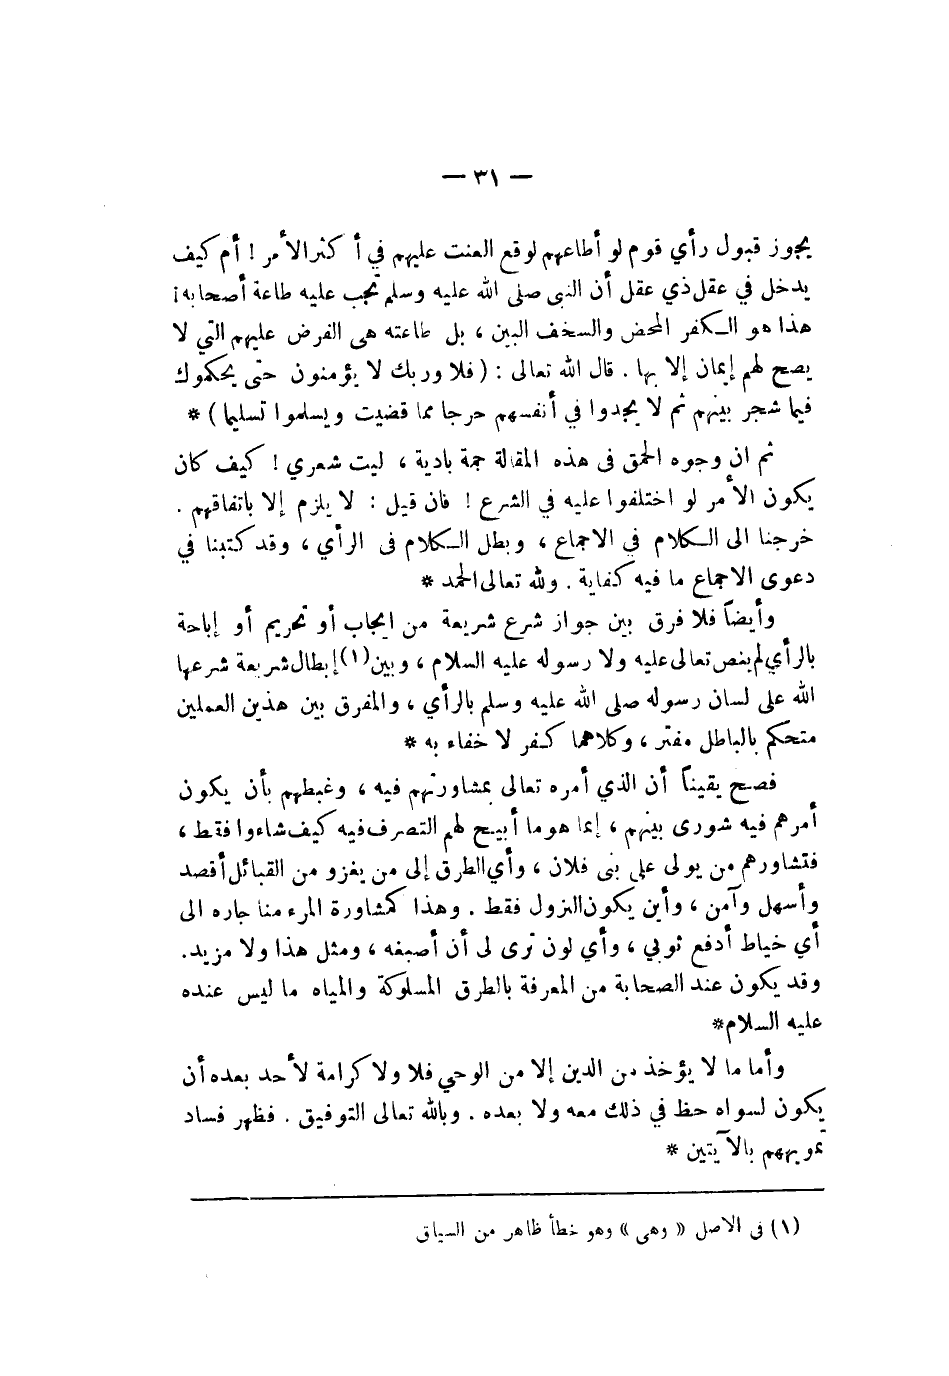 — ٣١ —
يجوز قبول رأي قوم لو أطاعهم لوقع العنت عليهم في أكثر الأمر ! أم كيف
يدخل في عقل ذي عقل أن النبى صلى الله عليه وسلم تجب عليه طاعة أصحابه ؟!
هذا هو الكفر المحض والسخف البين ، بل طاعته هى الفرض عليهم التي لا
يصح لهم إيمان إلا بها . قال الله تعالى : ( فلا وربك لا يؤمنون حتى يحكموك
فيما شجر بينهم ثم لا يجدوا في أنفسهم حرجا مما قضيت ويسلموا تسليما ) *
ثم ان وجوه الحمق فى هذه المقالة جمة بادية ، ليت شعري ! كيف كان
يكون الأمر لو اختلفوا عليه في الشرع ! فان قيل : لا يلزم إلا باتفاقهم .
خرجنا الى الكلام في الاجماع ، وبطل الكلام فى الرأي ، وقد كتبنا في
دعوى الاجماع ما فيه كفاية . ولله تعالى الحمد *
وأيضاً فلا فرق بين جواز شرع شريعة من ايجاب أو تحريم أو إباحة
بالرأي لم ينص تعالى عليه ولا رسوله عليه السلام ، وبين (١) إبطال شريعة شرعها
الله على لسان رسوله صلى الله عليه وسلم بالرأي ، والمفرق بين هذين العملين
متحكم بالباطل مفتر ، وكلاهما كفر لا خفاء به *
فصح يقيناً أن الذي أمره تعالى بمشاورتهم فيه ، وغبطهم بأن يكون
أمرهم فيه شورى بينهم ، إنما هو ما أبيح لهم التصرف فيه كيف شاءوا فقط ،
فتشاورهم من يولى على بنى فلان ، وأي الطرق إلى من يغزو من القبائل أقصد
وأسهل وآمن ، وأين يكون النزول فقط . وهذا كمشاورة المرء منا جاره الى
أي خياط أدفع ثوبي ، وأي لون ترى لى أن أصبغه ، ومثل هذا ولا مزيد.
وقد يكون عند الصحابة من المعرفة بالطرق المسلوكة والمياه ما ليس عنده
عليه السلام *
وأما ما لا يؤخذ من الدين إلا من الوحي فلا ولا كرامة لأحد بعده أن
يكون لسواه حظ في ذلك معه ولا بعده . وبالله تعالى التوفيق . فظهر فساد
تمويههم بالآيتين *
(١) فى الاصل « وهى » وهو خطأ ظاهر من السياق